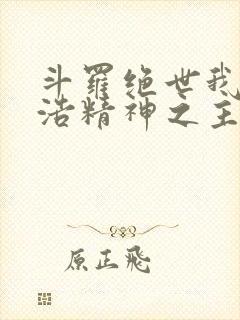 斗羅绝世我
浩精神之主
原正飛